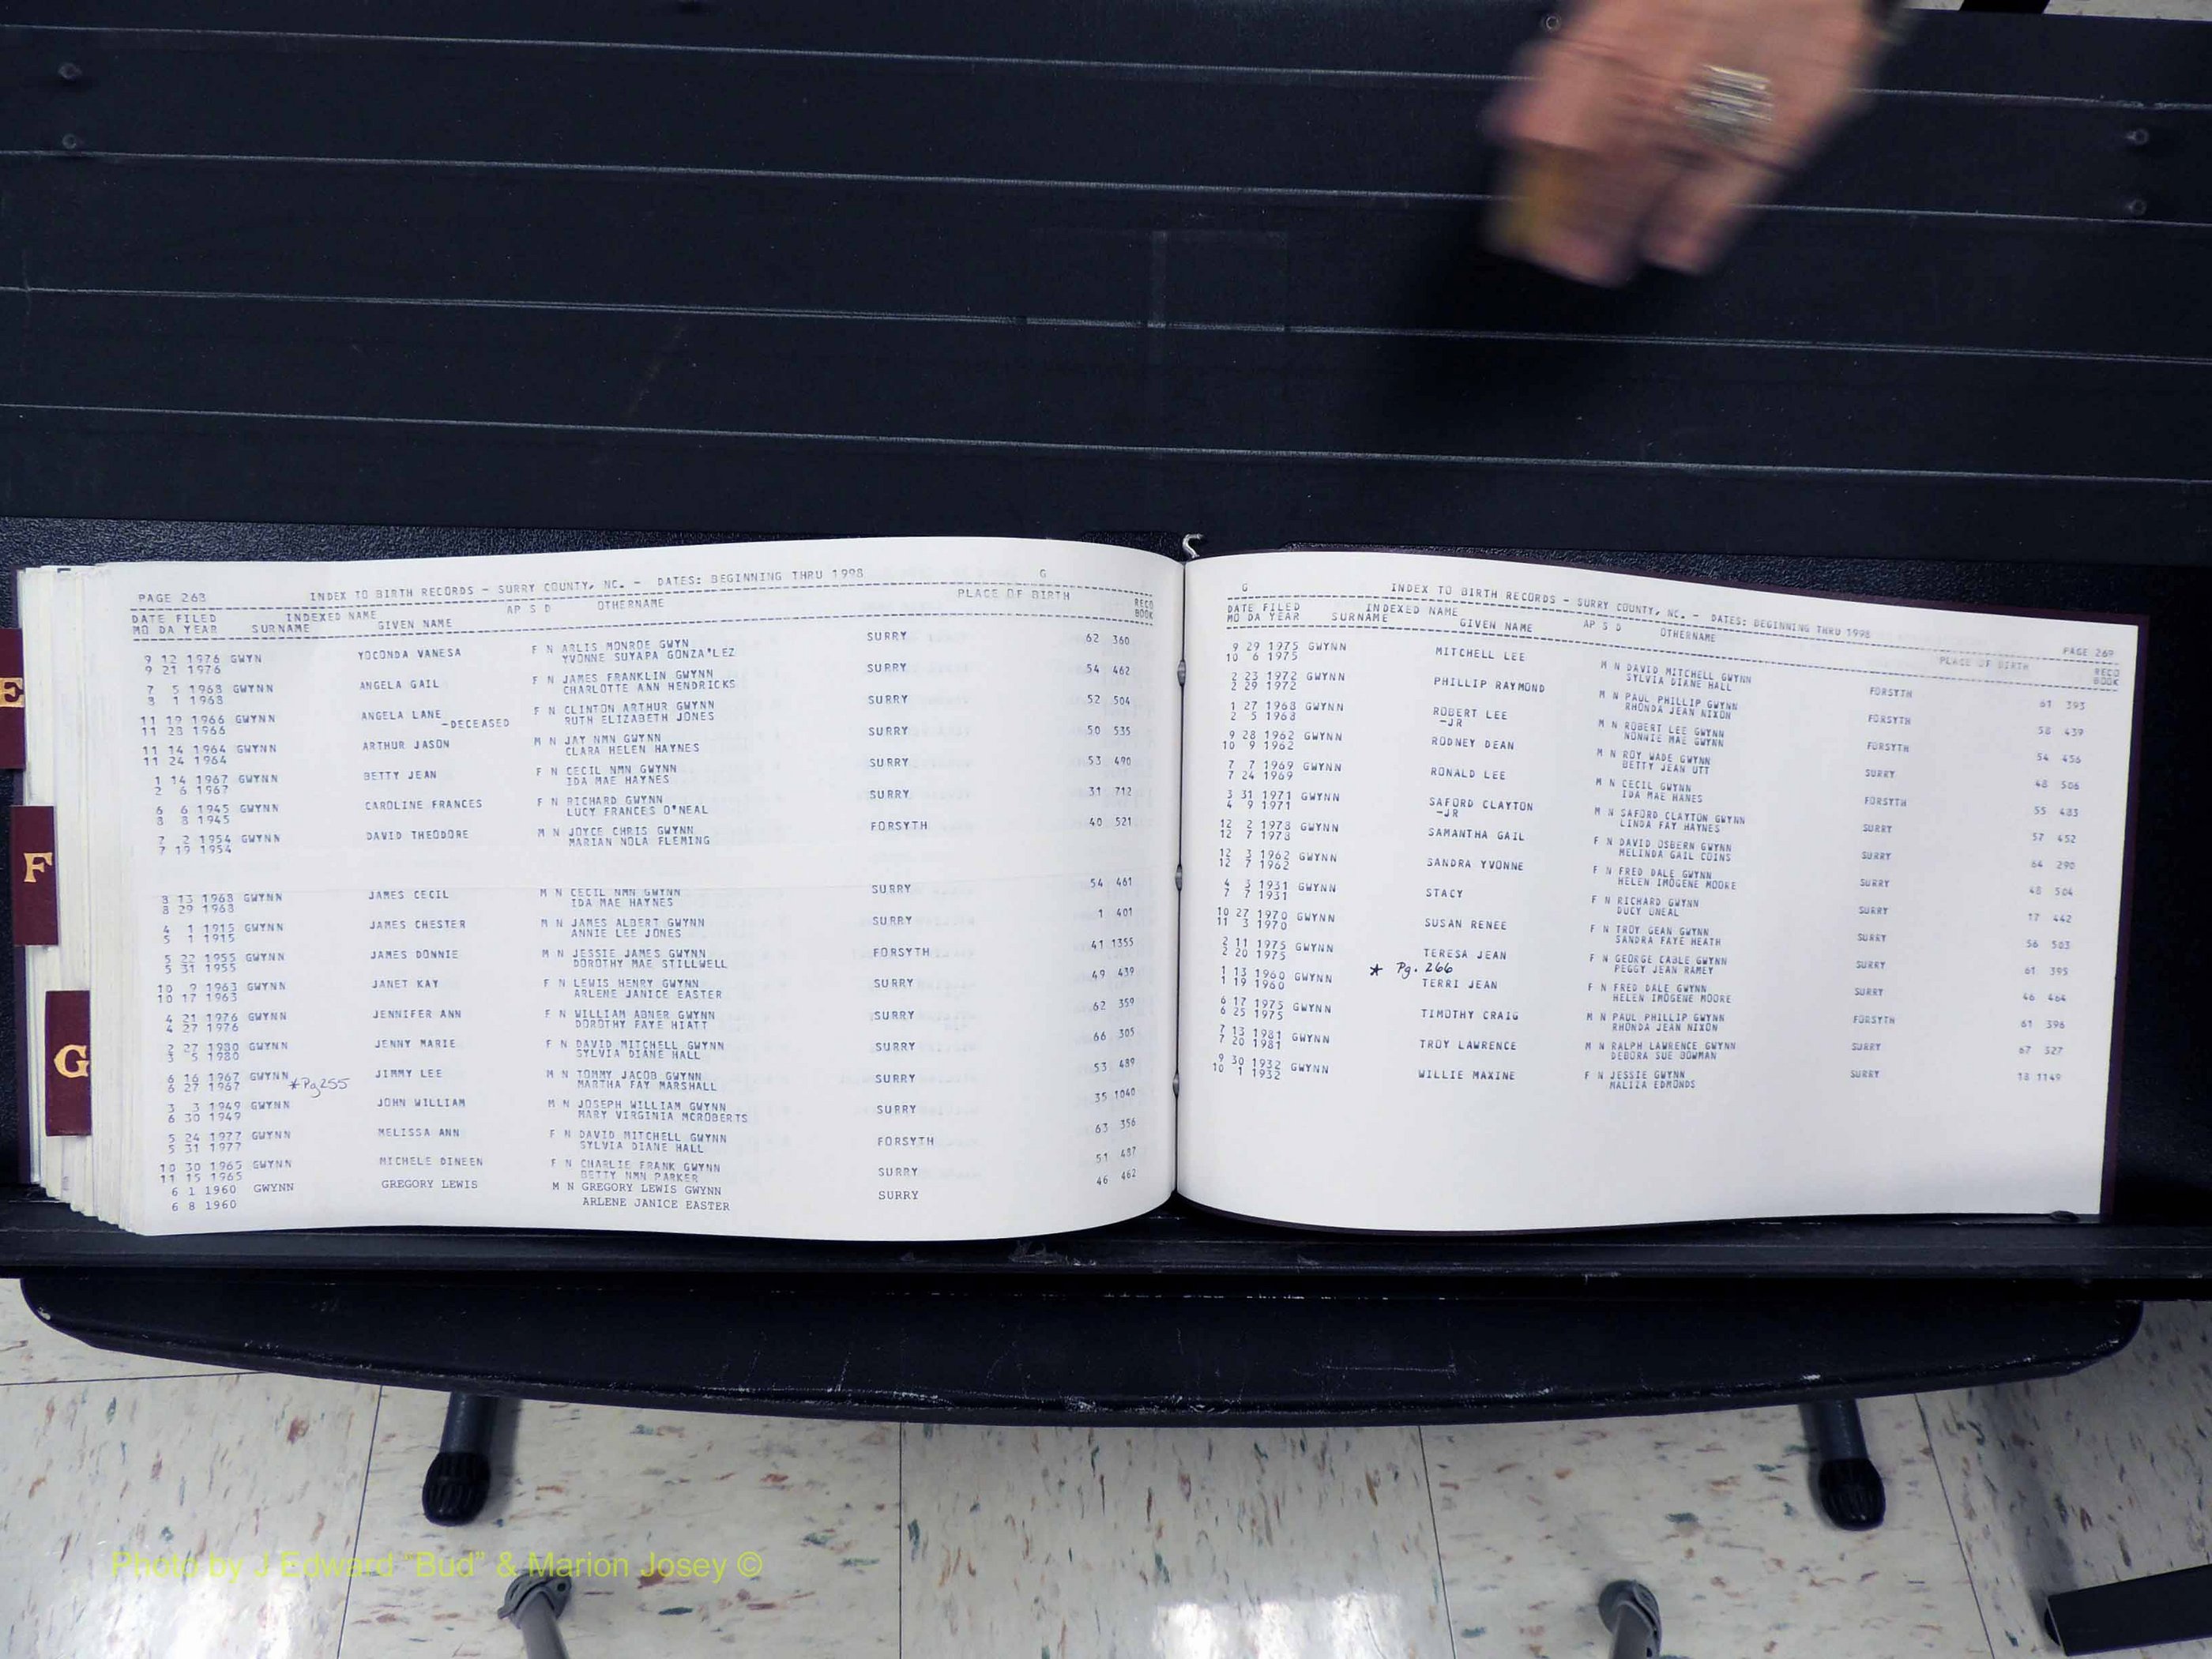 E
F
G
PAGE 268 INDEX TO BIRTH RECORDS - SURRY COUNTY, NC. - DATES: BEGINNING THRU 1998 G
DATE FILED INDEXED NAME AP S D OTHERNAME PLACE OF BIRTH RECO
MO DA YEAR SURNAME GIVEN NAME BOOK
9 12 1976 GWYN YOCONDA VANESA F N ARLIS MONROE GWYN SURRY 62 360
9 21 1976 YVONNE SUYAPA GONZA'LEZ
7 5 1968 GWYNN ANGELA GAIL F N JAMES FRANKLIN GWYNN SURRY 54 462
8 1 1968 CHARLOTTE ANN HENDRICKS
11 19 1966 GWYNN ANGELA LANE F N CLINTON ARTHUR GWYNN SURRY 52 504
11 28 1966 -DECEASED RUTH ELIZABETH JONES
11 14 1964 GWYNN ARTHUR JASON M N JAY NMN GWYNN SURRY 50 535
11 24 1964 CLARA HELEN HAYNES
1 14 1967 GWYNN BETTY JEAN F N CECIL NMN GWYNN SURRY 53 490
2 6 1967 IDA MAE HAYNES
6 6 1945 GWYNN CAROLINE FRANCES F N RICHARD GWYNN SURRY 31 712
8 8 1945 LUCY FRANCES O'NEAL
7 2 1954 GWYNN DAVID THEODORE M N JOYCE CHRIS GWYNN FORSYTH 40 521
7 19 1954 MARIAN NOLA FLEMING
8 13 1968 GWYNN JAMES CECIL M N CECIL NMN GWYNN SURRY 54 461
8 29 1968 IDA MAE HAYNES
4 1 1915 GWYNN JAMES CHESTER M N JAMES ALBERT GWYNN SURRY 1 401
5 1 1915 ANNIE LEE JONES
5 22 1955 GWYNN JAMES DONNIE M N JESSIE JAMES GWYNN FORSYTH 41 1355
5 31 1955 DOROTHY MAE STILLWELL
10 9 1963 GWYNN JANET KAY F N LEWIS HENRY GWYNN SURRY 49 439
10 17 1963 ARLENE JANICE EASTER
4 21 1976 GWYNN JENNIFER ANN F N WILLIAM ABNER GWYNN SURRY 62 359
4 27 1976 DOROTHY FAYE HIATT
2 27 1980 GWYNN JENNY MARIE F N DAVID MITCHELL GWYNN SURRY 66 305
3 5 1980 SYLVIA DIANE HALL
6 16 1967 GWYNN JIMMY LEE M N TOMMY JACOB GWYNN SURRY 53 489
6 27 1967 *Pg255 MARTHA FAY MARSHALL
3 3 1949 GWYNN JOHN WILLIAM M N JOSEPH WILLIAM GWYNN SURRY 35 1040
6 30 1949 MARY VIRGINIA MCROBERTS
5 24 1977 GWYNN MELISSA ANN F N DAVID MITCHELL GWYNN FORSYTH 63 356
5 31 1977 SYLVIA DIANE HALL
10 30 1965 GWYNN MICHELE DINEEN F N CHARLIE FRANK GWYNN SURRY 51 487
11 15 1965 BETTY NMN PARKER
6 1 1960 GWYNN GREGORY LEWIS M N GREGORY LEWIS GWYNN SURRY 46 462
6 8 1960 ARLENE JANICE EASTER
G INDEX TO BIRTH RECORDS - SURRY COUNTY, NC. - DATES: BEGINNING THRU 1998 PAGE 269
DATE FILED INDEXED NAME AP S D OTHERNAME PLACE OF BIRTH RECO
MO DA YEAR SURNAME GIVEN NAME BOOK
9 29 1975 GWYNN MITCHELL LEE M N DAVID MITCHELL GWYNN FORSYTH 61 393
10 6 1975 SYLVIA DIANE HALL
2 23 1972 GWYNN PHILLIP RAYMOND M N PAUL PHILLIP GWYNN FORSYTH 58 439
2 29 1972 RHONDA JEAN NIXON
1 27 1968 GWYNN ROBERT LEE M N ROBERT LEE GWYNN FORSYTH 54 456
2 5 1968 -JR NONNIE MAE GWYNN
9 28 1962 GWYNN RODNEY DEAN M N ROY WADE GWYNN SURRY 48 506
10 9 1962 BETTY JEAN UTT
7 7 1969 GWYNN RONALD LEE M N CECIL GWYNN FORSYTH 55 483
7 24 1969 IDA MAE HANES
3 31 1971 GWYNN SAFORD CLAYTON M N SAFORD CLAYTON GWYNN SURRY 57 452
4 9 1971 -JR LINDA FAY HAYNES
12 2 1978 GWYNN SAMANTHA GAIL F N DAVID OSBERN GWYNN SURRY 64 290
12 7 1978 MELINDA GAIL COINS
12 3 1962 GWYNN SANDRA YVONNE F N FRED DALE GWYNN SURRY 48 504
12 7 1962 HELEN IMOGENE MOORE
4 3 1931 GWYNN STACY F N RICHARD GWYNN SURRY 17 442
7 7 1931 DUCY ONEAL
10 27 1970 GWYNN SUSAN RENEE F N TROY GEAN GWYNN SURRY 56 503
11 3 1970 SANDRA FAYE HEATH
2 11 1975 GWYNN TERESA JEAN F N GEORGE CABLE GWYNN SURRY 61 395
2 20 1975 PEGGY JEAN RAMEY
* Pg. 266
1 13 1960 GWYNN TERRI JEAN F N FRED DALE GWYNN SURRY 46 464
1 19 1960 HELEN IMOGENE MOORE
6 17 1975 GWYNN TIMOTHY CRAIG M N PAUL PHILLIP GWYNN FORSYTH 61 396
6 25 1975 RHONDA JEAN NIXON
7 13 1981 GWYNN TROY LAWRENCE M N RALPH LAWRENCE GWYNN SURRY 67 327
7 20 1981 DEBORA SUE BOWMAN
9 30 1932 GWYNN WILLIE MAXINE F N JESSIE GWYNN SURRY 18 1149
10 1 1932 MALIZA EDMONDS
Photo by J Edward "Bud" & Marion Josey ©